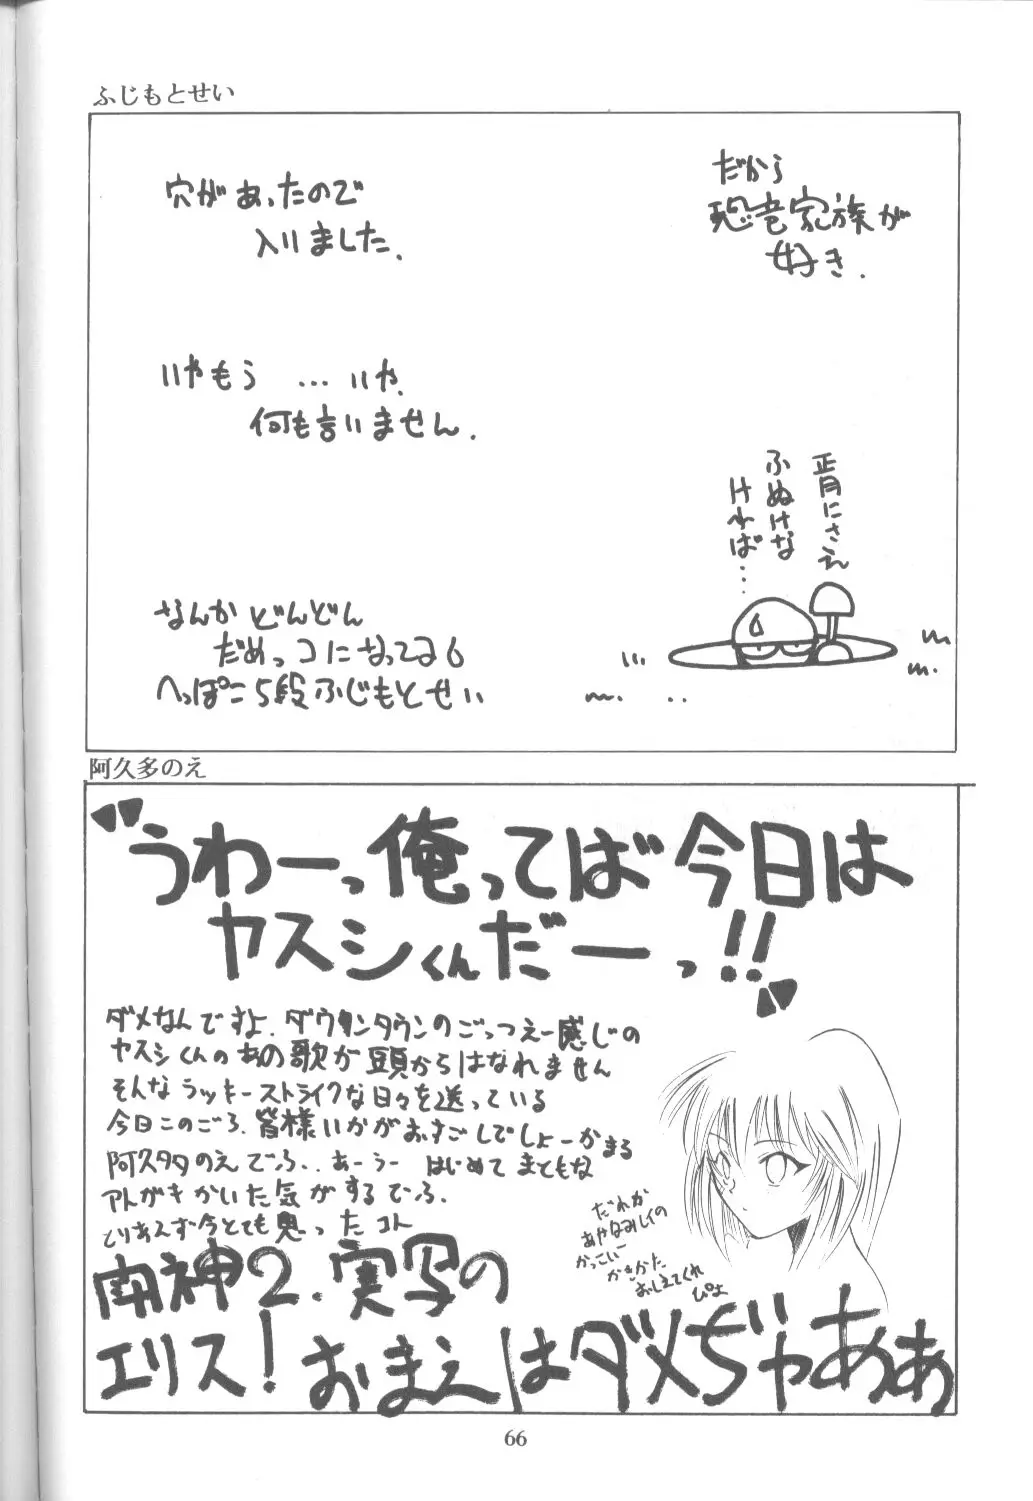 ふじもとせい
だから
恐竜家族が
好き.
穴があったので
入りました.
いやもう …いや.
何も言いません.
正月にさえ
ふぬけな
ければ…
なんか どんどん
だめっコになってる
へっぽこ5段ふじもとせい
阿久多のえ
"うわーっ俺ってば今日は
ヤスシくんだーっ!!"
ダメなんですよ.ダウンタウンのごっつえー感じの
ヤスシくんのあの歌が頭からはなれません
そんなラッキーストライクな日々を送っている
今日このごろ.皆様いかがおすごしでしょーかまる
阿久多のえでふ..あーうー はじめてまともな
アトガキかいた気がするでふ.
とりあえず今とても思ったコト
だれか
あやなみレイの
かっこいー
かきかた
おしえてくれ
ぴよ
南神2.実写の
エリス!おまえはダメぢゃあああ
66